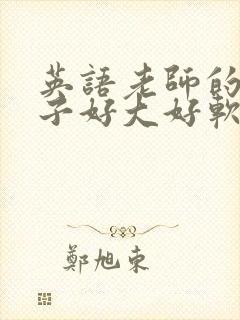 英語老師的
子好大好軟
鄭旭東